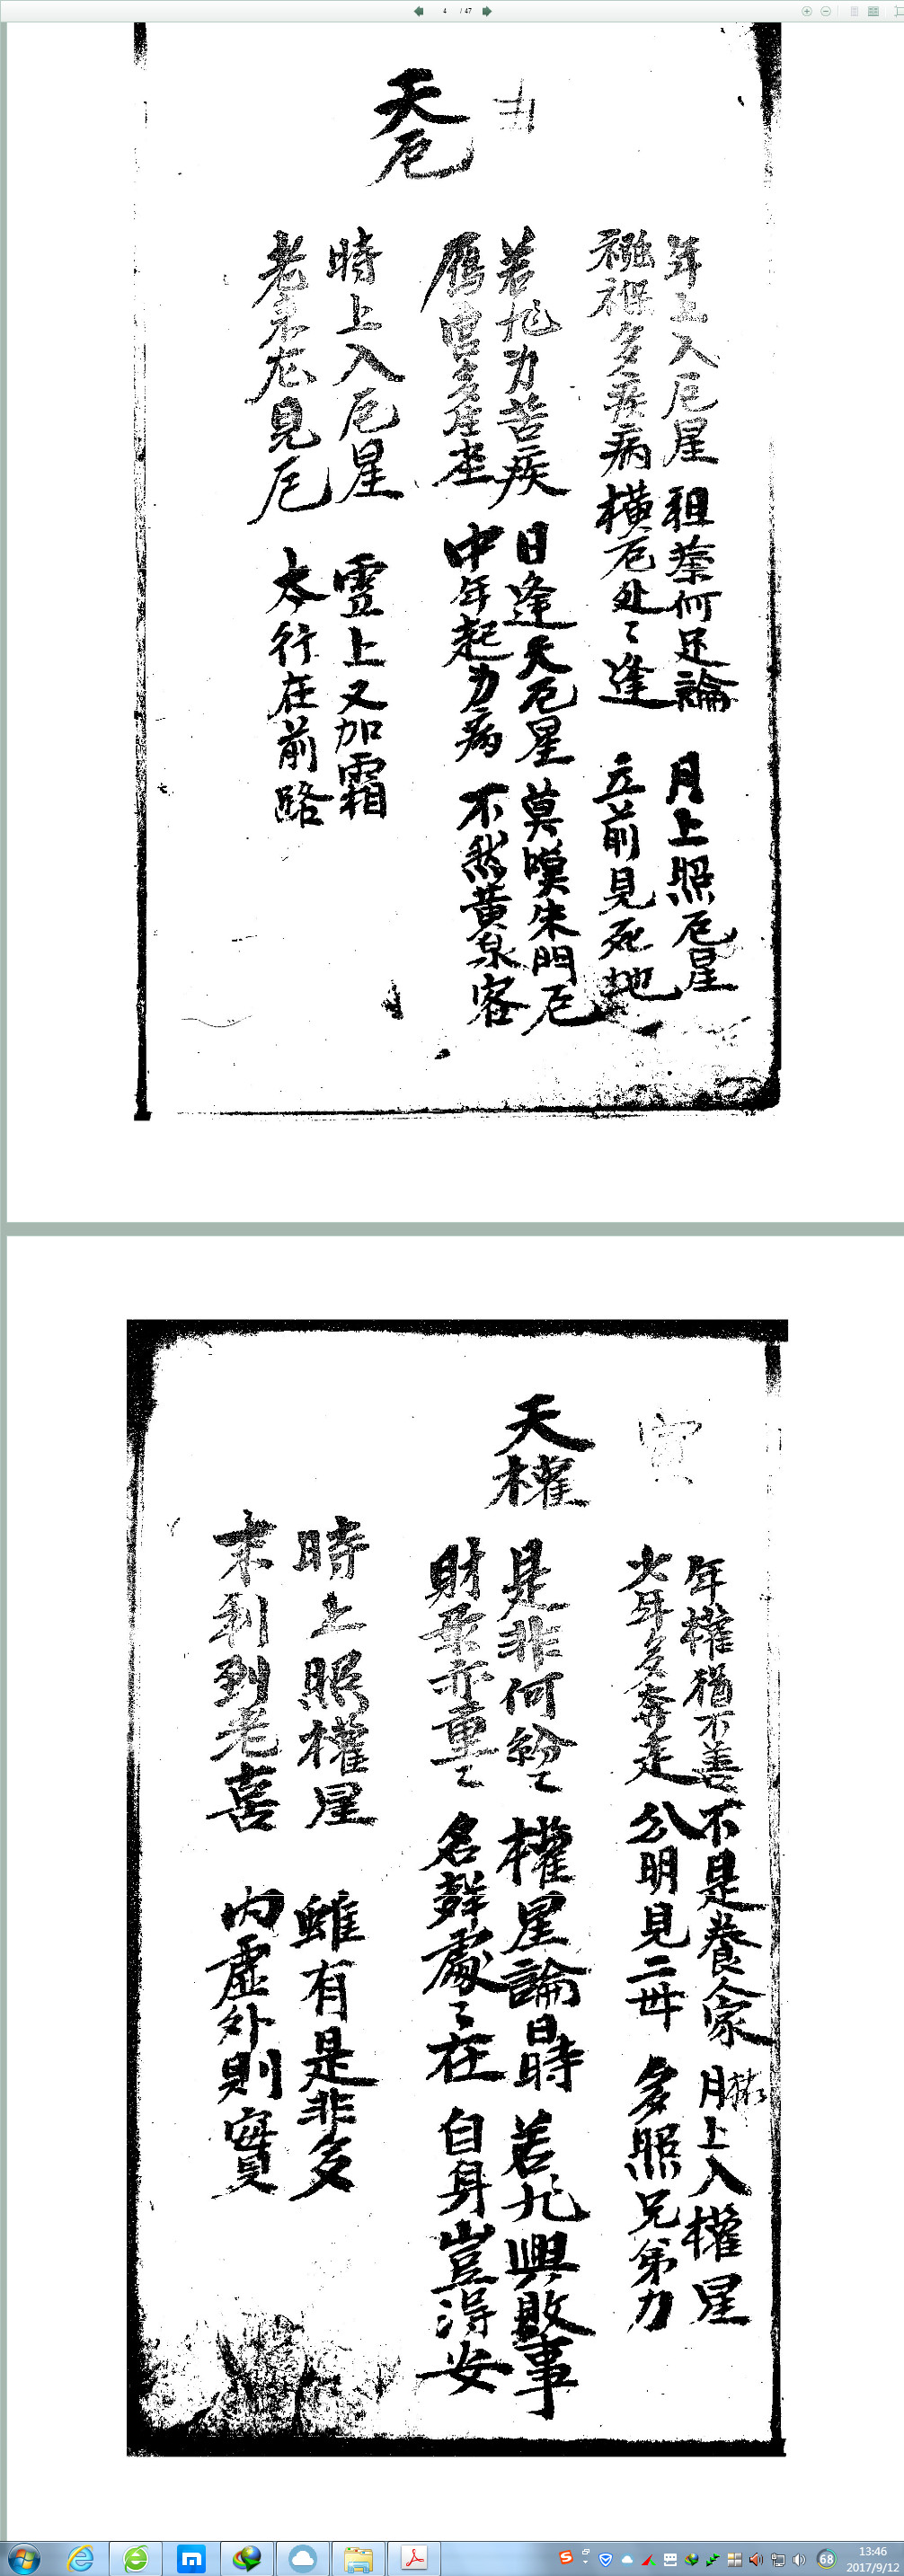 4 / 47
丑
天厄
年上入厄星 祖業何足論 月上照厄星
襁褓多疾病 橫厄処〻逢 立前見死地
若非身苦疾 日逢天厄星 莫嘆朱門厄
雁宮多空坐 中年起身病 不然黃泉客
時上入厄星 雪上又加霜
老来尤見厄 太行在前路
寅
天權
年權猶不善 不是養人家 月上入權星
少年多奔走 分明見二母 多照兄弟力
是非何紛〻 權星論日時 若非興敗事
財亦重〻 名聲處〻在 自身豈得安
時上照權星 雖有是非多
末利到老喜 內虛外則實
68
13:46
2017/9/12